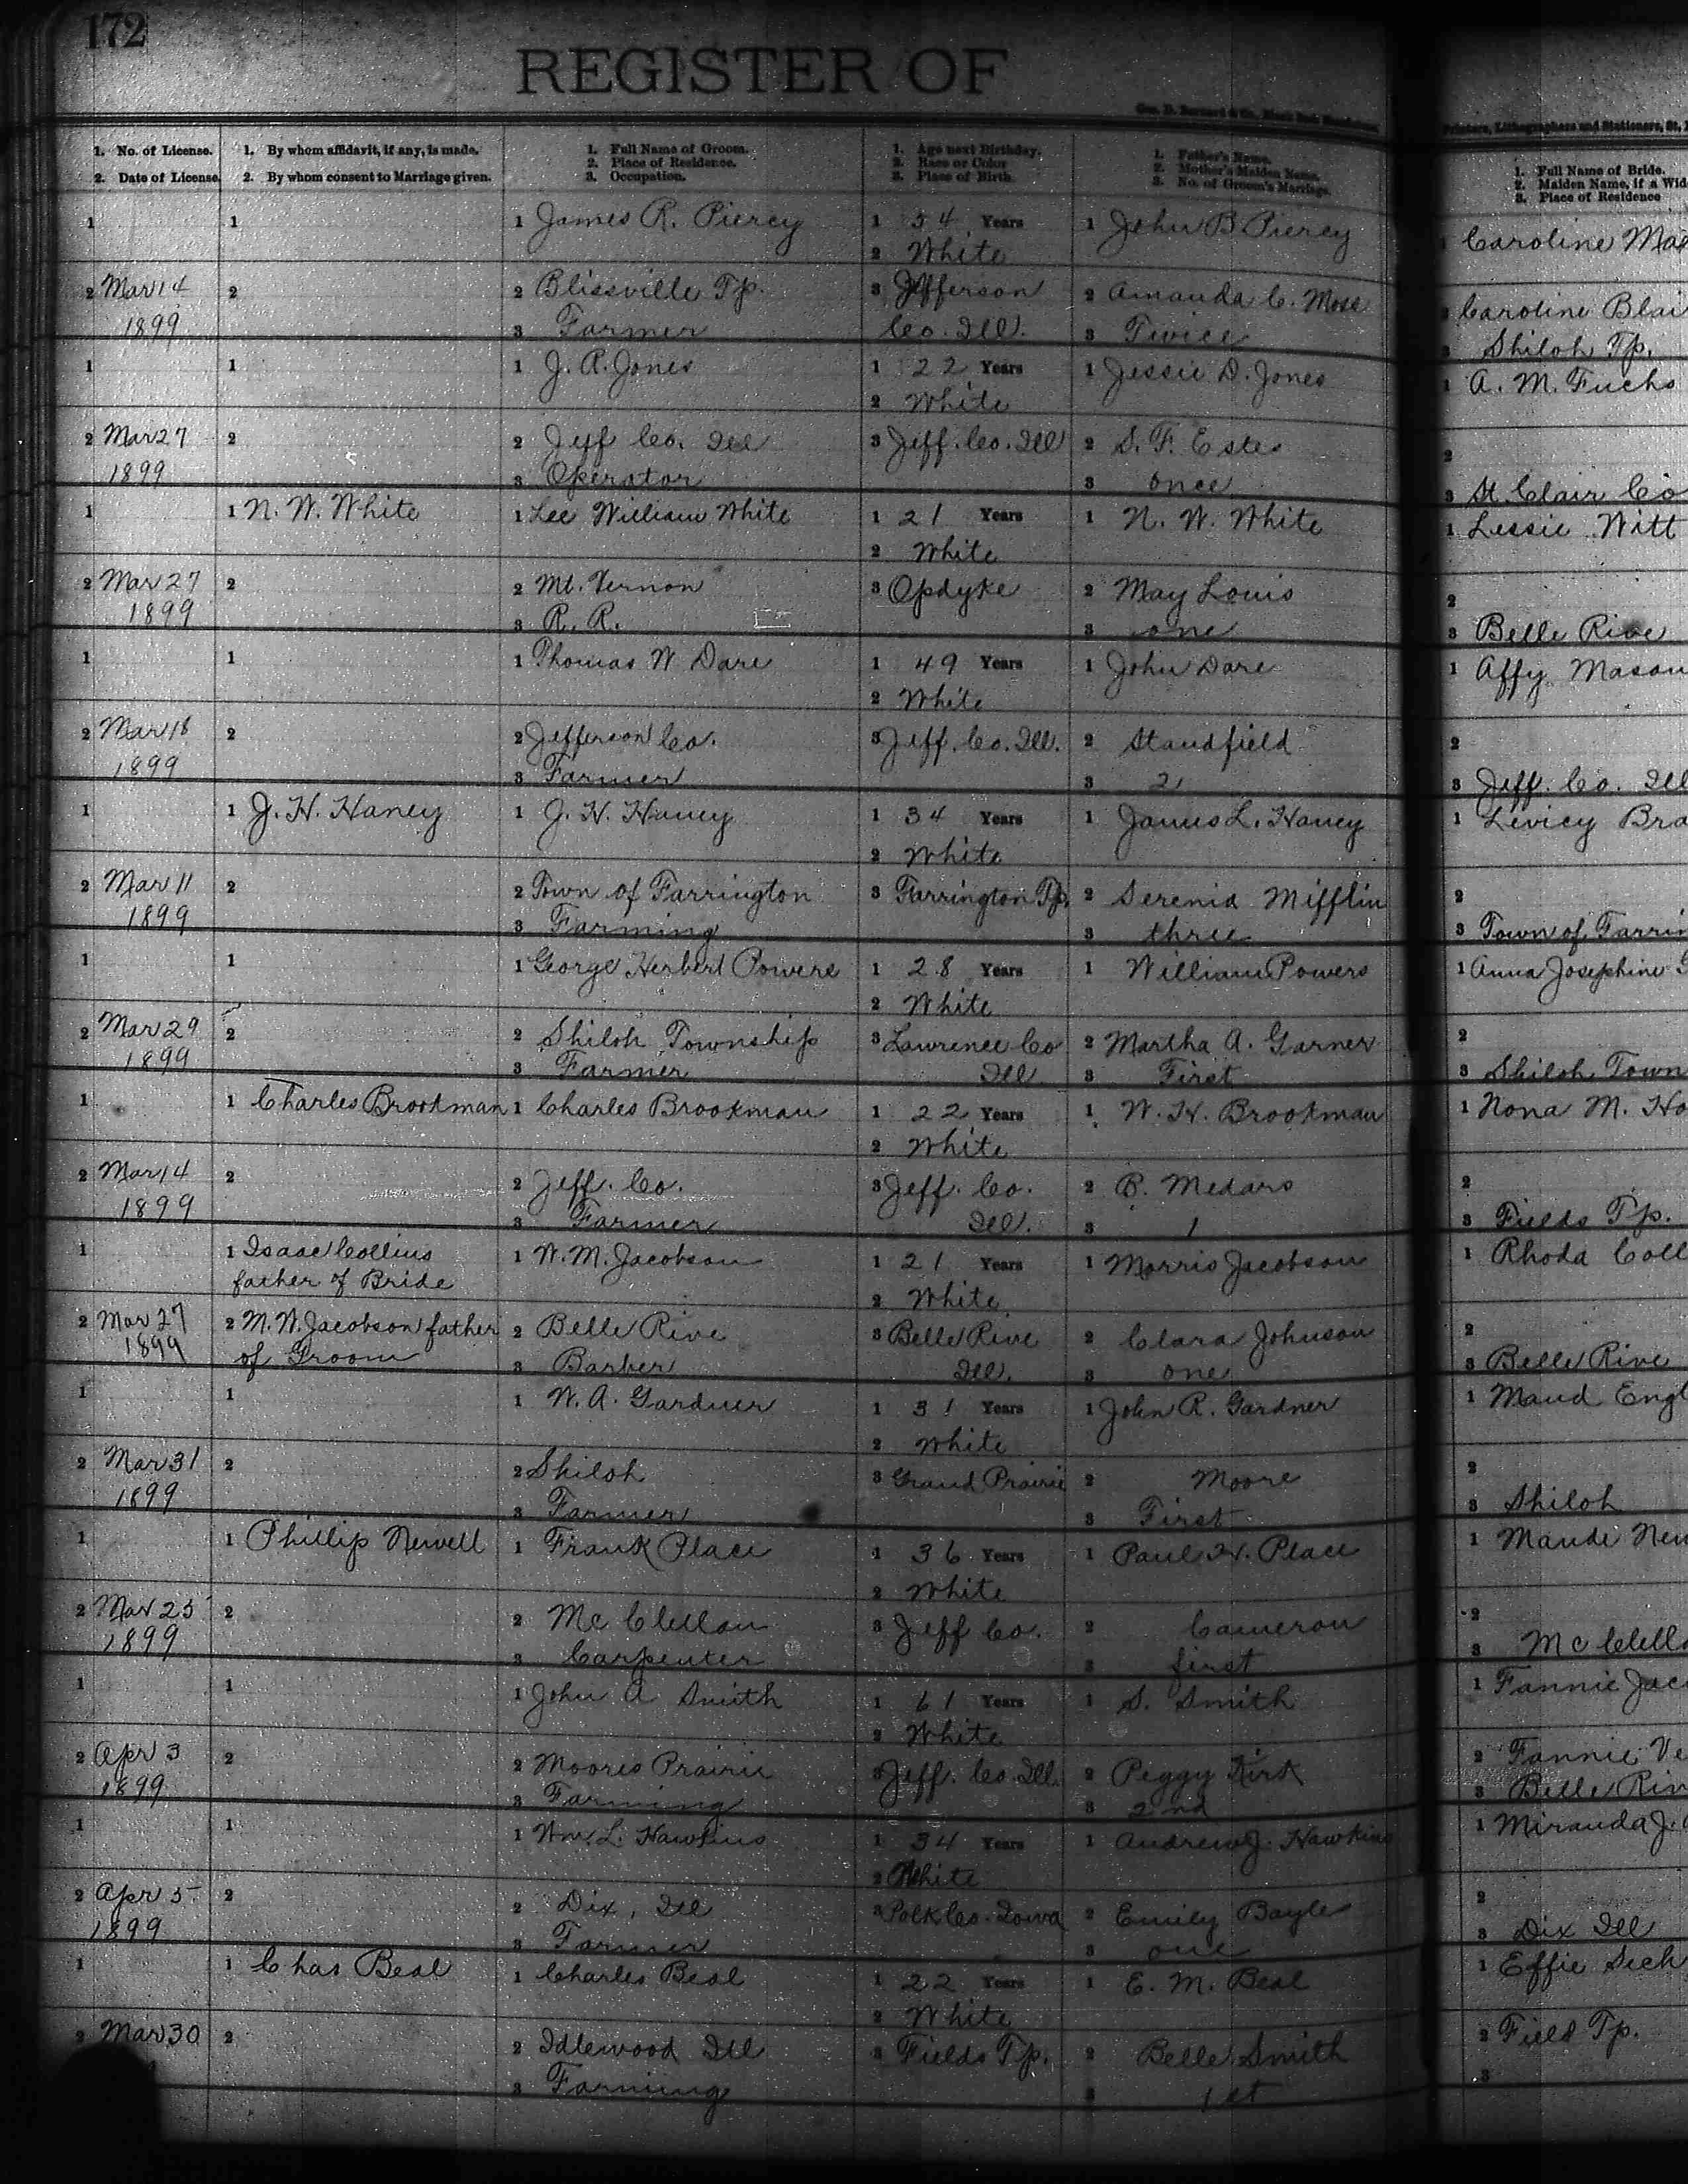 172
REGISTER OF
Geo. D. Barnard & Co., Blank Book
Printers, Lithographers and Stationers, St.
1. No. of License.
2. Date of License.
1. By whom affidavit, if any, is made.
2. By whom consent to Marriage given.
1. Full Name of Groom.
2. Place of Residence.
3. Occupation.
1. Age next Birthday.
2. Race or Color
3. Place of Birth.
1. Father's Name.
2. Mother's Maiden Name.
3. No. of Groom's Marriage.
1. Full Name of Bride.
2. Maiden Name, if a Wid
3. Place of Residence
1 1 1 James R. Piercy 1 54 Years 1 John B Piercy Caroline Mas
2 White
2 Mar 14 2 2 Blissville Tp. 3 Jefferson 2 Amanda C. Moss Caroline Blai
1899 3 Farmer Co. Ill. 3 Twice 3 Shiloh Tp.
1 1 1 J. R. Jones 1 22 Years 1 Jessie D. Jones 1 A. M. Fuchs
2 White
2 Mar 27 2 2 Jeff Co. Ill 3 Jeff. Co. Ill 2 S. F. Estes 2
1899 3 Operator 3 once 3 St. Clair Co
1 1 N. W. White 1 Lee William White 1 21 Years 1 N. W. White 1 Lessie Witt
2 White
2 Mar 27 2 2 Mt. Vernon 3 Opdyke 2 May Louis 2
1899 3 R. R. 3 one 3 Belle Rive
1 1 1 Thomas W Dare 1 49 Years 1 John Dare 1 Affy Mason
2 White
2 Mar 18 2 2 Jefferson Co. 3 Jeff. Co. Ill. 2 Standfield 2
1899 3 Farmer 3 2 3 Jeff. Co. Ill
1 1 J. H. Haney 1 J. H. Haney 1 34 Years 1 James L. Haney 1 Levicy Bra
2 White
2 Mar 11 2 2 Town of Farrington 3 Farrington Tp. 2 Serenia Mifflin 2
1899 3 Farming 3 three 3 Town of Farrin
1 1 1 George Herbert Powers 1 28 Years 1 William Powers 1 Anna Josephine G
2 White
2 Mar 29 2 2 Shiloh Township 3 Lawrence Co 2 Martha A. Garner 2
1899 3 Farmer Ill 3 First 3 Shiloh Town
1 1 Charles Brookman 1 Charles Brookman 1 22 Years 1 W. H. Brookman 1 Nona M. Ho
2 White
2 Mar 14 2 2 Jeff. Co. 3 Jeff. Co. 2 B. Medars 2
1899 3 Farmer Ill. 3 1 3 Fields Tp.
1 1 Isaac Collins 1 W. M. Jacobson 1 21 Years 1 Morris Jacobson 1 Rhoda Coll
father of Bride 2 White
2 Mar 27 2 M. W. Jacobson father 2 Belle Rive 3 Belle Rive 2 Clara Johnson 2
1899 of Groom 3 Barber Ill. 3 one 3 Belle Rive
1 1 1 W. A. Gardner 1 31 Years 1 John R. Gardner 1 Maud Engl
2 White
2 Mar 31 2 2 Shiloh 3 Grand Prairie 2 Moore 2
1899 3 Farmer 3 First 3 Shiloh
1 1 Phillip Newell 1 Frank Place 1 36 Years 1 Paul H. Place 1 Maude New
2 White
2 Mar 25 2 2 Mc Clellan 3 Jeff Co. 2 Cameron 2
1899 3 Carpenter 3 first 3 Mc Clella
1 1 1 John A Smith 1 61 Years 1 S. Smith 1 Fannie Jac
2 White
2 Apr 3 2 2 Moores Prairie 3 Jeff. Co. Ill. 2 Peggy Kirk 2 Fannie Ve
1899 3 Farming 3 2nd 3 Belle Riv
1 1 1 Wm. L. Hawkins 1 34 Years 1 Andrew J. Hawkins 1 Miranda J.
2 White
2 Apr 5 2 2 Dix, Ill 3 Polk Co. Iowa 2 Emily Bayle 2
1899 3 Farmer 3 one 3 Dix Ill
1 1 Chas Beal 1 Charles Beal 1 22 Years 1 E. M. Beal 1 Effie Sech
2 White
2 Mar 30 2 2 Idlewood Ill 3 Fields Tp. 2 Belle Smith 2 Field Tp.
3 Farming 3 1st 3